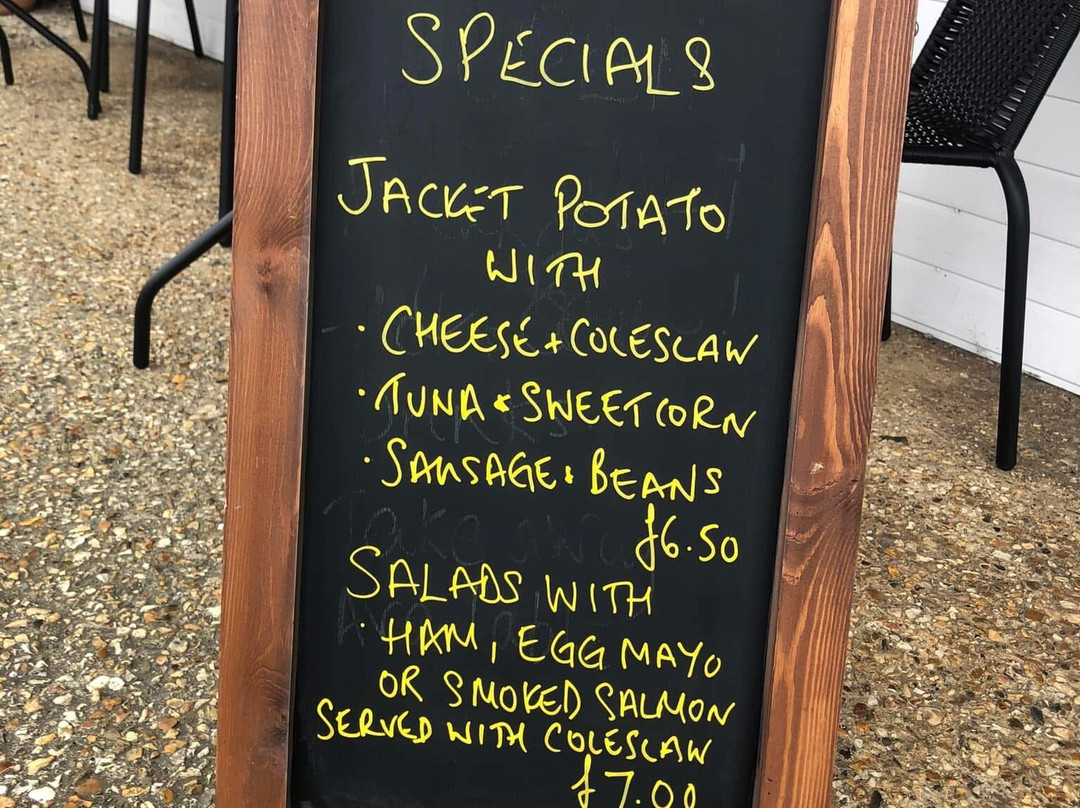 SPECIALS
JACKET POTATO
WITH
· CHEESE + COLESLAW
· TUNA & SWEETCORN
· SAUSAGE & BEANS
£6.50
SALADS WITH
· HAM, EGG MAYO
OR SMOKED SALMON
SERVED WITH COLESLAW
£7.00